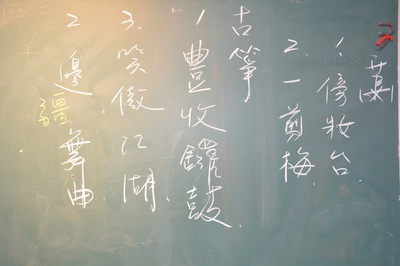 1.傍妝台.
2.一剪梅.
古箏
1豐收鑼鼓.
3.笑傲江湖.
2 邊疆舞曲